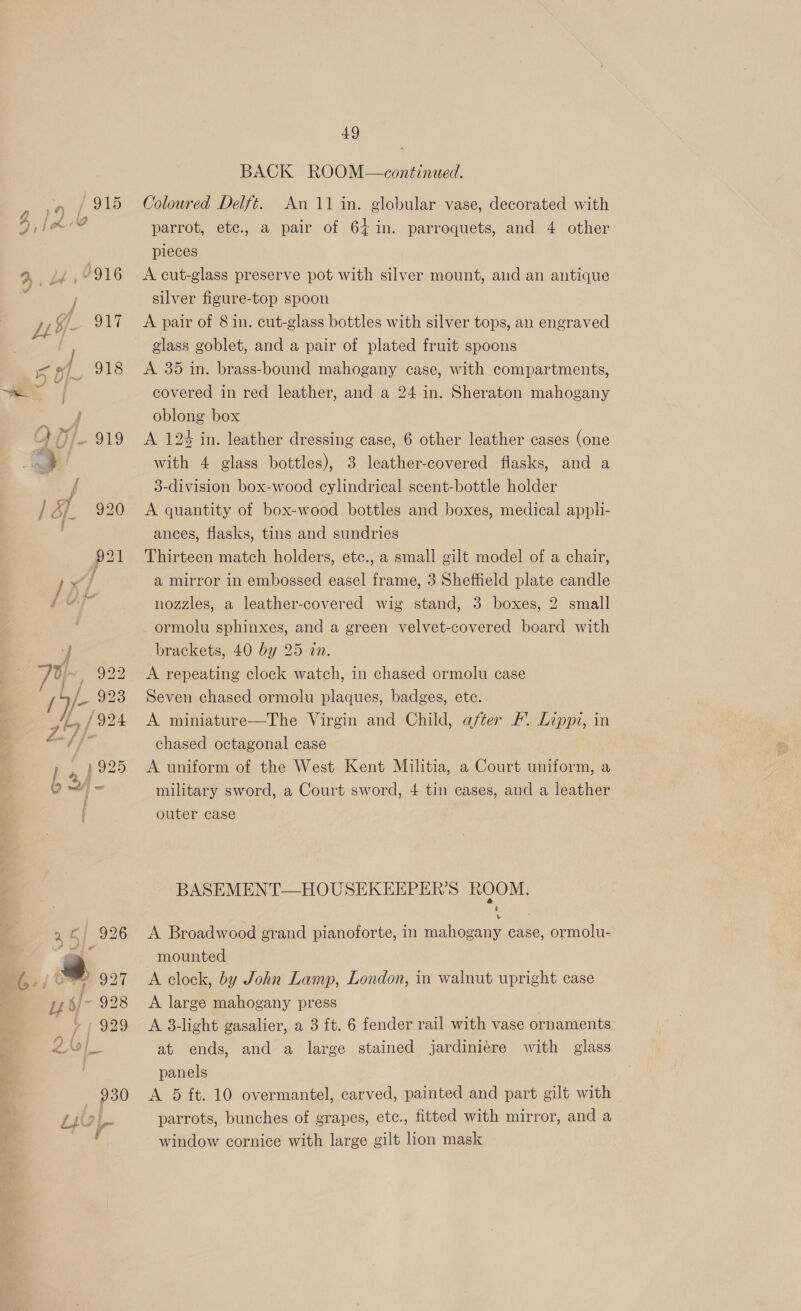 49
BACK ROOM—continued.
915 Coloured Delft. An 11 in. globular vase, decorated with
parrot, etc., a pair of 6¼ in. parroquets, and 4 other
pieces
916 A cut-glass preserve pot with silver mount, and an antique
silver figure-top spoon
917 A pair of 8 in. cut-glass bottles with silver tops, an engraved
glass goblet, and a pair of plated fruit spoons
918 A 35 in. brass-bound mahogany case, with compartments,
covered in red leather, and a 24 in. Sheraton mahogany
oblong box
919 A 12½ in. leather dressing case, 6 other leather cases (one
with 4 glass bottles), 3 leather-covered flasks, and a
3-division box-wood cylindrical scent-bottle holder
920 A quantity of box-wood bottles and boxes, medical appli-
ances, flasks, tins and sundries
921 Thirteen match holders, etc., a small gilt model of a chair,
a mirror in embossed easel frame, 3 Sheffield plate candle
nozzles, a leather-covered wig stand, 3 boxes, 2 small
ormolu sphinxes, and a green velvet-covered board with
brackets, 40 by 25 in.
922 A repeating clock watch, in chased ormolu case
923 Seven chased ormolu plaques, badges, etc.
924 A miniature—The Virgin and Child, after F. Lippi, in
chased octagonal case
925 A uniform of the West Kent Militia, a Court uniform, a
military sword, a Court sword, 4 tin cases, and a leather
outer case
BASEMENT—HOUSEKEEPER'S ROOM.
926 A Broadwood grand pianoforte, in mahogany case, ormolu-
mounted
927 A clock, by John Lamp, London, in walnut upright case
928 A large mahogany press
929 A 3-light gasalier, a 3 ft. 6 fender rail with vase ornaments
at ends, and a large stained jardinière with glass
panels
930 A 5 ft. 10 overmantel, carved, painted and part gilt with
parrots, bunches of grapes, etc., fitted with mirror, and a
window cornice with large gilt lion mask